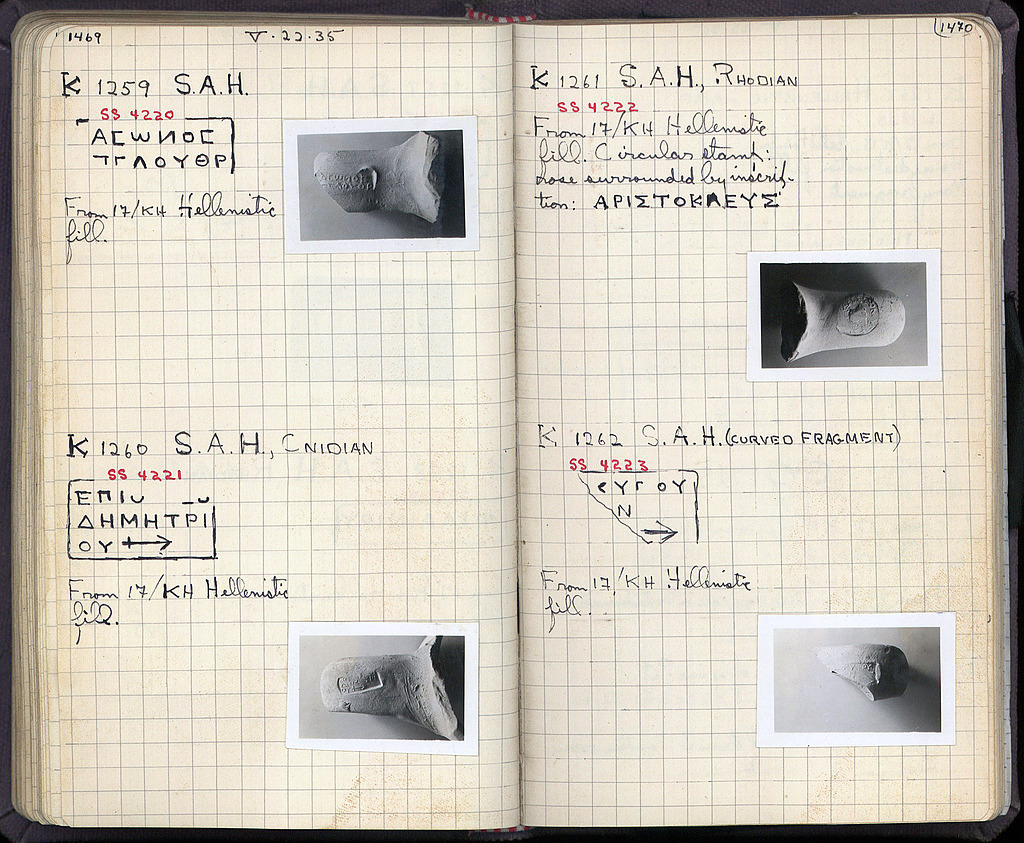 1469
V·22·35
K 1259 S.A.H.
SS 4220
ΑϹωИΟϹ
ΤΓΛΟΥΘΡ
From 17/KH Hellenistic
fill.
K 1260 S.A.H., CNIDIAN
SS 4221
ΕΠΙ
ΔΗΜΗΤΡΙ
ΟΥ
From 17/KH Hellenistic
fill.
1470
K 1261 S.A.H., RHODIAN
SS 4222
From 17/KH Hellenistic
fill. Circular stamp:
rose surrounded by inscrip-
tion: ΑΡΙΣΤΟΚΛΕΥΣ
K 1262 S.A.H. (CURVED FRAGMENT)
SS 4223
ΥΓΟΥ
Ν
From 17/KH Hellenistic
fill.